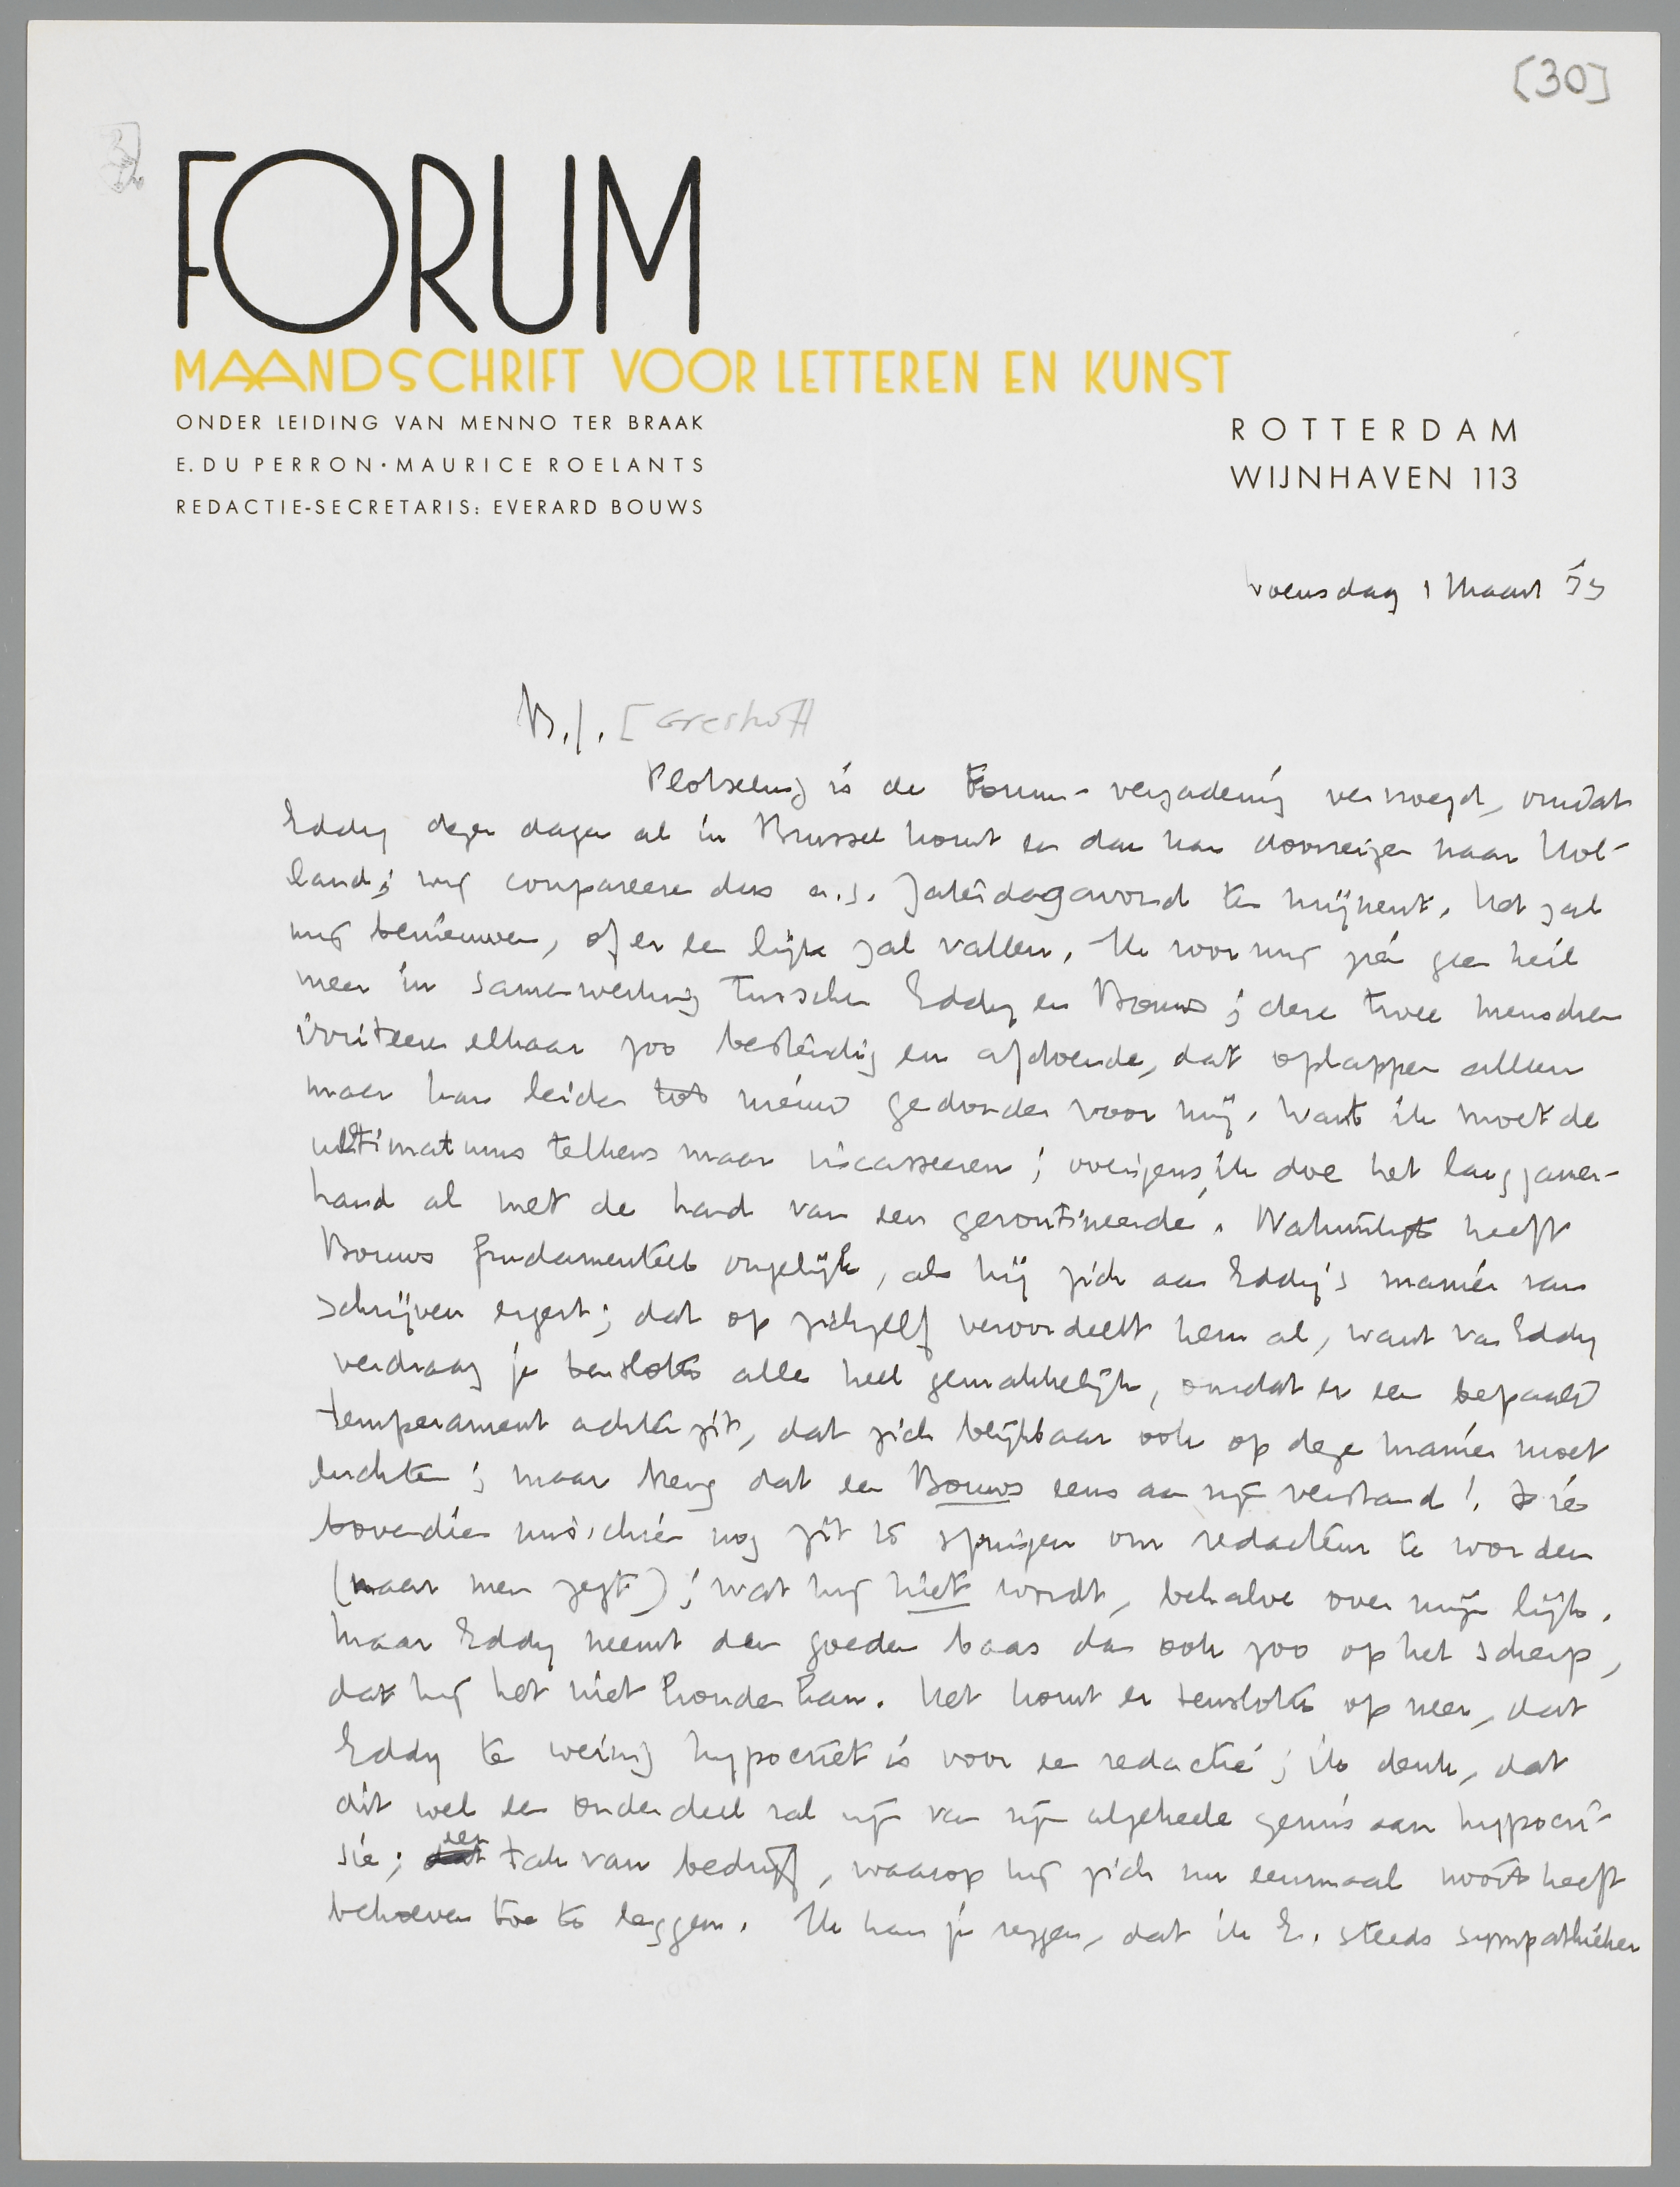 [30]
FORUM
MAANDSCHRIFT VOOR LETTEREN EN KUNST
ONDER LEIDING VAN MENNO TER BRAAK
E. DU PERRON · MAURICE ROELANTS
REDACTIE-SECRETARIS: EVERARD BOUWS
ROTTERDAM
WIJNHAVEN 113
Woensdag 1 Maart 33
B.J. [Greshoff
Plotseling is de Forum-vergadering vervroegd, omdat
Eddy dezer dagen al in Brussel komt en dan kan doorreizen naar Hol-
land; wij compareeren dus a.s. Zaterdagavond ten mijnent. Het zal
mij benieuwen, of er een lijk zal vallen. Ik voor mij zie geen heil
meer in samenwerking tusschen Eddy en Bouws; deze twee menschen
irriteeren elkaar zoo bestendig en afdoende, dat oplappen alleen
maar kan leiden tot nieuw gedonder voor mij. Want ik moet de
ultimatums telkens maar incasseeren; overigens, ik doe het langzamer-
hand al met de hand van een geroutineerde. Natuurlijk heeft
Bouws fundamenteel ongelijk, als hij zich aan Eddy's manier van
schrijven ergert; dat op zichzelf veroordeelt hem al, want van Eddy
verdraag je tenslotte alles heel gemakkelijk, omdat er een bepaald
temperament achter zit, dat zich blijkbaar ook op deze manier moet
luchten; maar breng dat een Bouws eens aan zijn verstand! Die
bovendien misschien nog zit te springen om redacteur te worden
(naar men zegt); wat hij niet wordt, behalve over mijn lijk.
Maar Eddy neemt den goeden baas dan ook zoo op het scherp,
dat hij het niet houden kan. Het komt er tenslotte op neer, dat
Eddy te weinig hypocriet is voor een redactie; ik denk, dat
dit wel een onderdeel zal zijn van zijn algeheele gemis aan hypocri-
sie; een tak van bedrijf, waarop hij zich nu eenmaal nooit heeft
behoeven toe te leggen. Ik kan je zeggen, dat ik E. steeds sympathieker